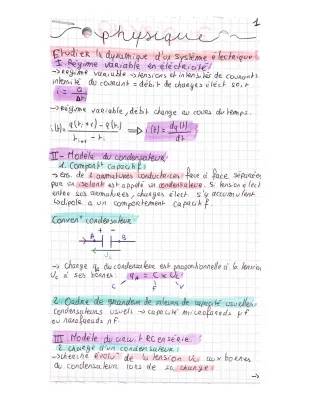 1
physique
Etudier la dynamique d'un système électrique
I. Régime variable en électricité
→ régime variable → tensions et intensités de courants
intensité du courant = débit de charges élect. soit
i = Q/Δt
→ régime variable, débit change au cours du temps.
⇒ i(t) = dq(t)/dt
II - Modèle du condensateur
1. Comport capacitif:
→ ens. de 2 armatures conductrices face à face séparées
par un isolant est appelé un condensateur. Si tension élect
entre ses armatures, charges élect. s'y accumulent
dipole a un comportement capacitif.
Conven° condensateur
A + - B
→ charge qA du condensateur est proportionnelle à la tension
Uc à ses bornes: qA = C × Uc
C F V
2. Ordre de grandeur de valeurs de capacité usuelles
condensateurs usuels → capacité microfarads µF
ou nanofarads nF.
III. Modèle du circuit RC en série.
1. charge d'un condensateur:
→ cherche évolu° de la tension Uc aux bornes
du condensateur lors de sa charge:
→